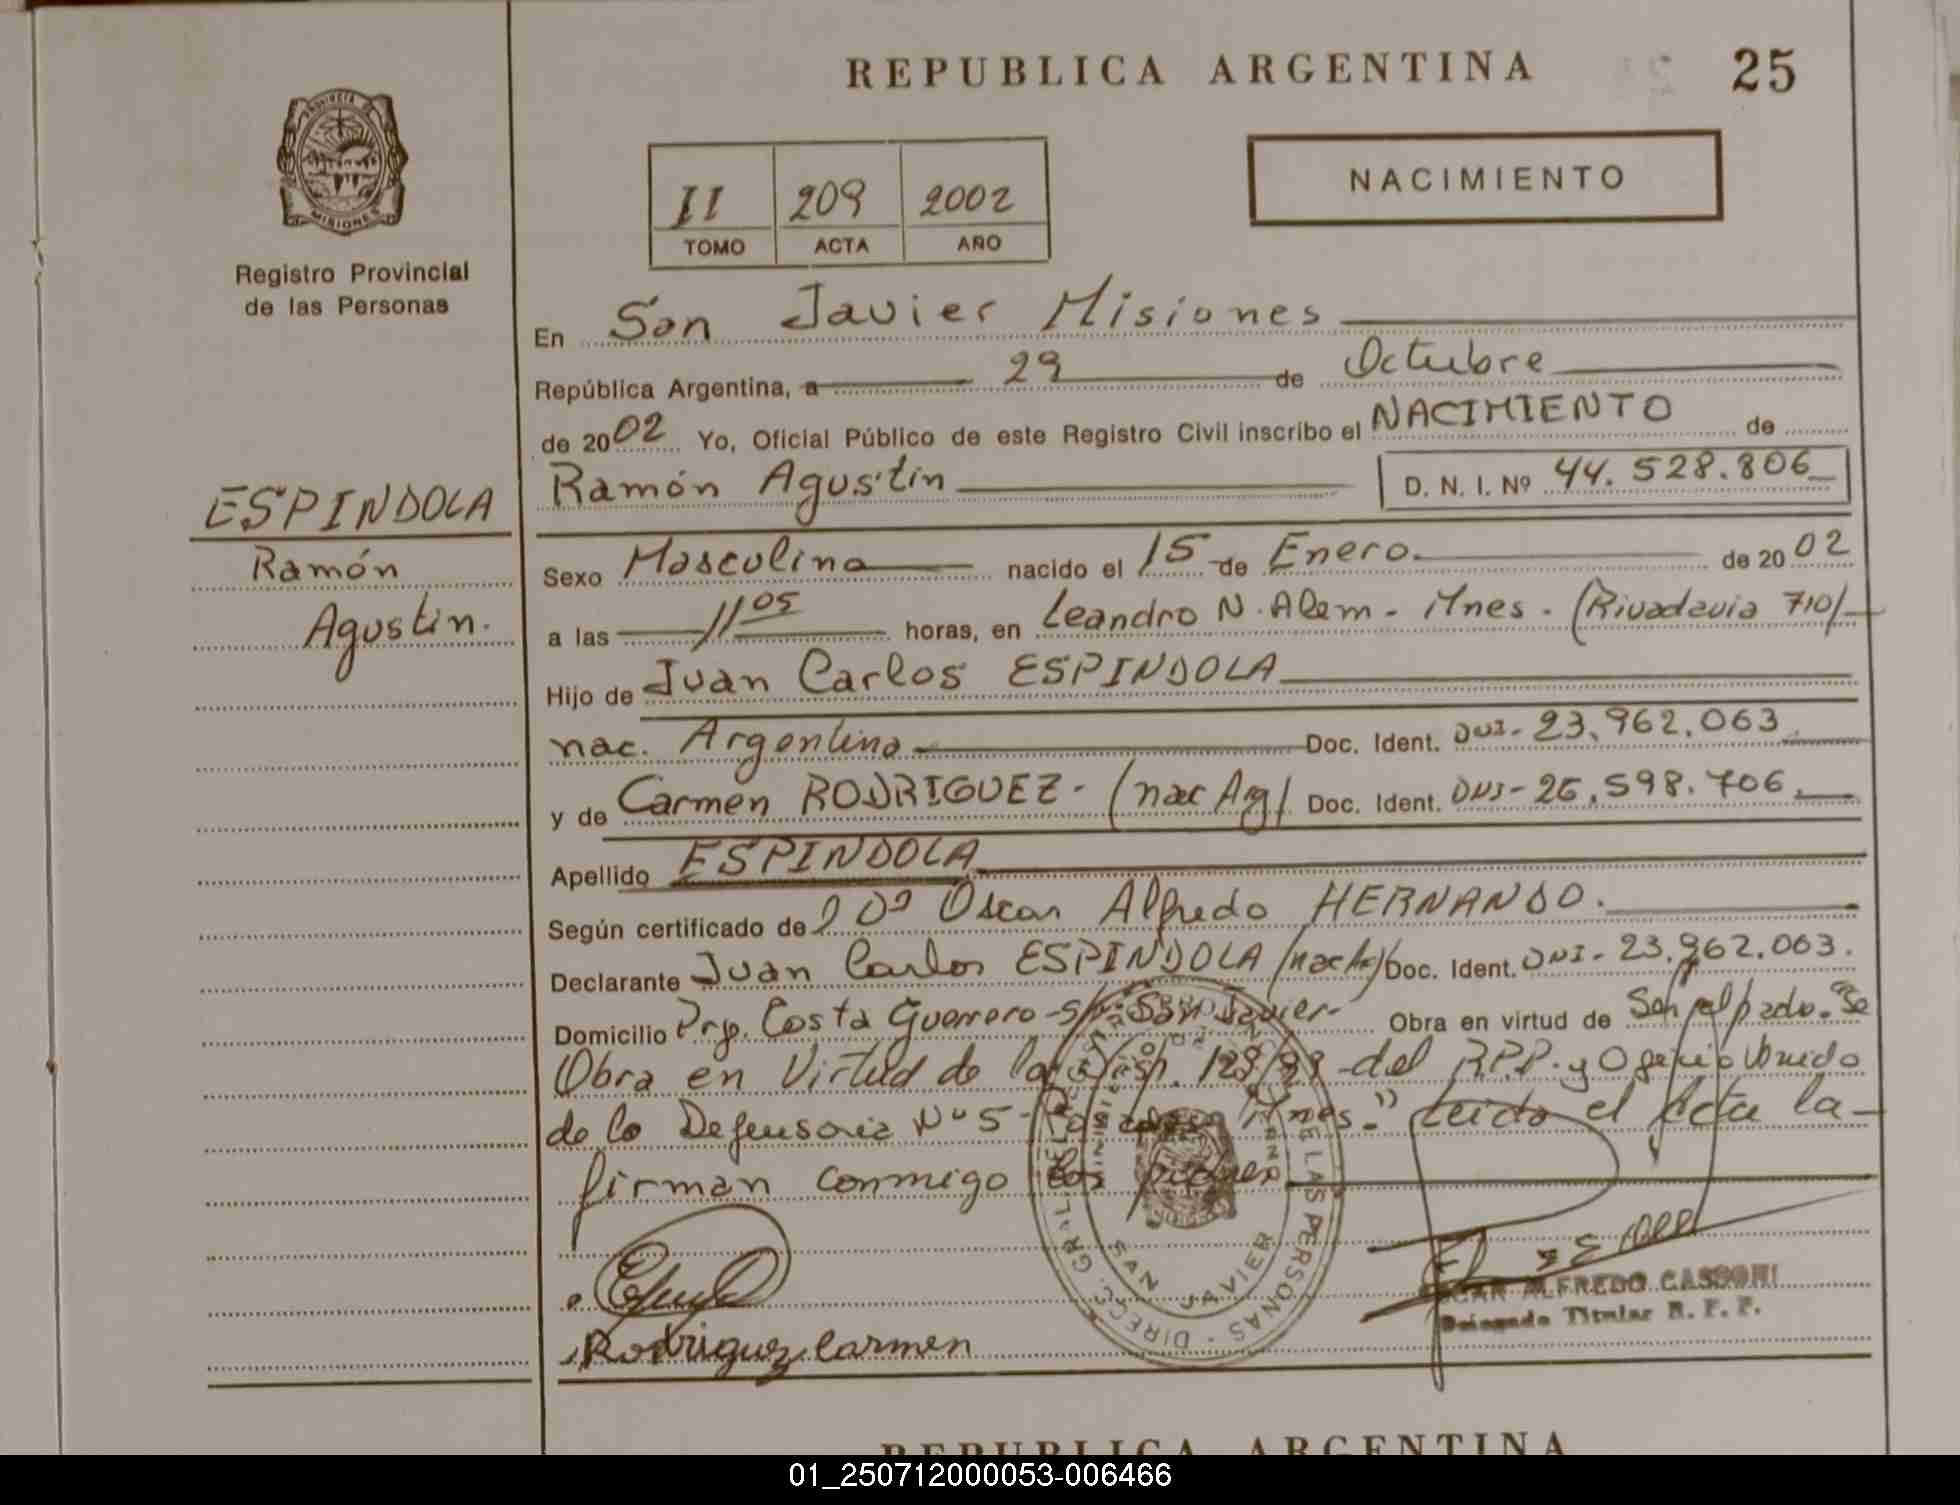 REPUBLICA ARGENTINA 25
PROVINCIA DE MISIONES
Registro Provincial
de las Personas
II 209 2002
TOMO ACTA AÑO
NACIMIENTO
En San Javier Misiones
República Argentina, a 29 de Octubre
de 2002 Yo, Oficial Público de este Registro Civil inscribo el NACIMIENTO de
Ramón Agustin D. N. I. Nº 44.528.806
ESPINDOLA
Ramón
Agustin.
Sexo Masculino nacido el 15 de Enero. de 2002
a las 11 05 horas, en Leandro N. Alem - Mnes - (Rivadavia 710/
Hijo de Juan Carlos ESPINDOLA
nac. Argentina Doc. Ident. DNI - 23.962.063
y de Carmen RODRIGUEZ - (nac Arg/ Doc. Ident. DNI - 26.598.706.
Apellido ESPINDOLA
Según certificado de Oscar Alfredo HERNANDO.
Declarante Juan Carlos ESPINDOLA Doc. Ident. DNI - 23.962.063.
Domicilio Costa Guerrero - San Javier - Obra en virtud de "Se
Obra en Virtud de la 128/93 del R.P.P. y
de la Defensoria Nº 5 - Mnes." Leida el Acta la
firman conmigo los padres
Rodriguez Carmen
DIRECC. GRAL. DE LAS PERSONAS
SAN JAVIER
OSCAR ALFREDO CASSONI
Delegado Titular R. P. P.
REPUBLICA ARGENTINA
01_250712000053-006466